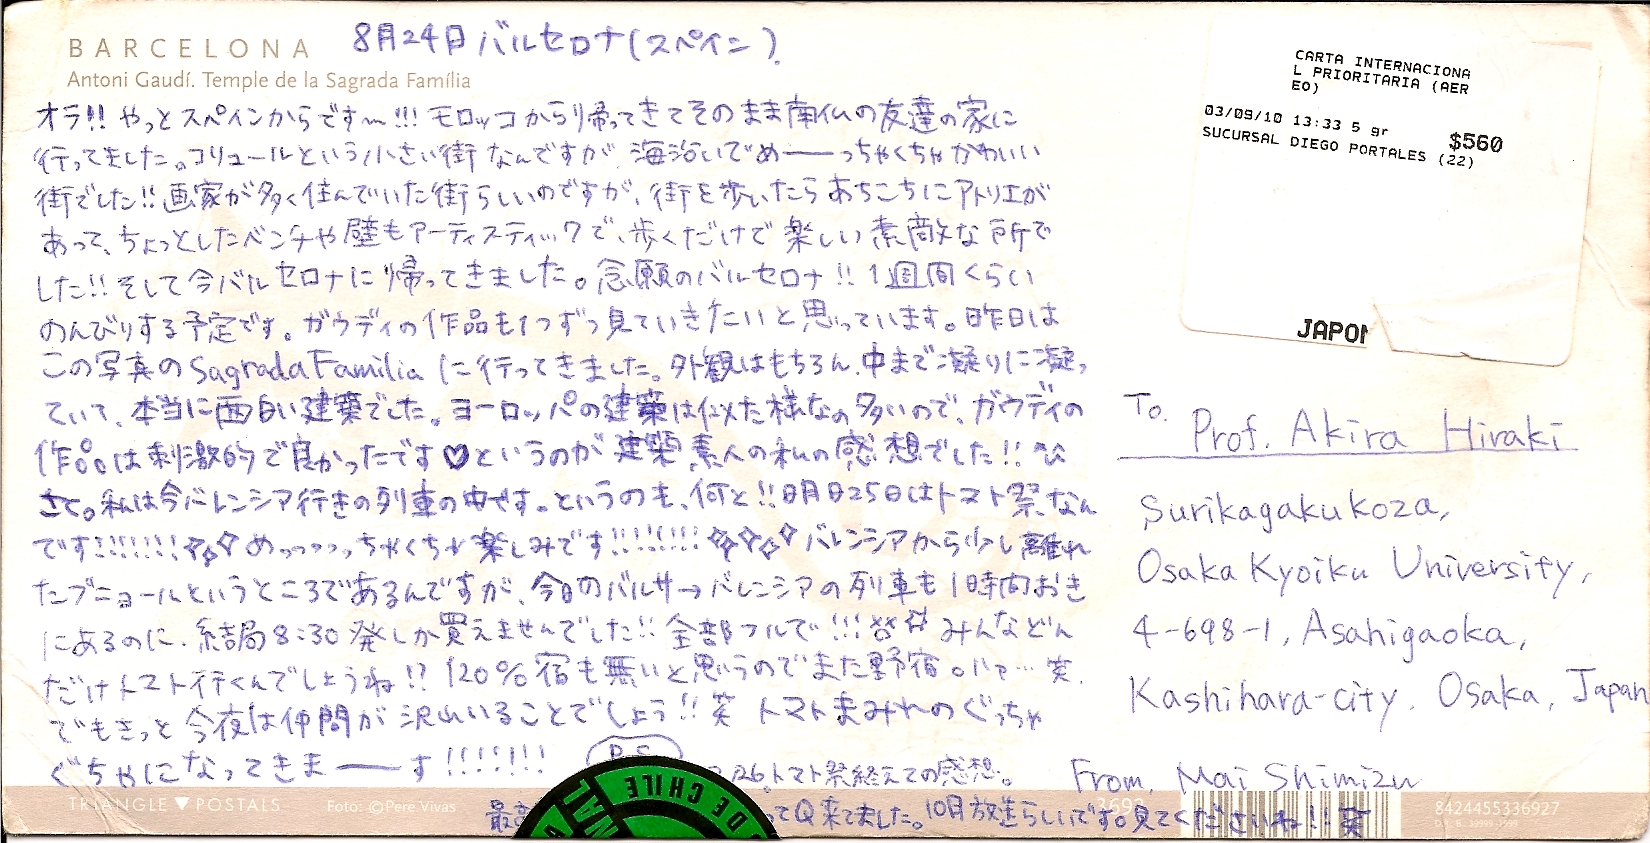 BARCELONA
8月24日 バルセロナ(スペイン)
Antoni Gaudí. Temple de la Sagrada Família
オラ!! やっとスペインからです〜!!! モロッコから帰ってきてそのまま南仏の友達の家に
行ってました。コリュールという小さい街なんですが、海沿いでめーーっちゃくちゃかわいい
街でした!! 画家が多く住んでいた街らしいのですが、街を歩いたらあちこちにアトリエが
あって、ちょっとしたベンチや壁もアーティスティックで、歩くだけで楽しい素敵な所で
した!! そして今バルセロナに帰ってきました。念願のバルセロナ!! 1週間くらい
のんびりする予定です。ガウディの作品も1つずつ見ていきたいと思っています。昨日は
この写真のSagrada Familiaに行ってきました。外観はもちろん、中まで凝りに凝っ
ていて、本当に面白い建築でした。ヨーロッパの建築は似た様なの多いので、ガウディの
作品は刺激的で良かったです♡というのが建築素人の私の感想でした!!
さて。私は今バレンシア行きの列車の中です。というのも、何と!! 明日25日はトマト祭なん
です!!!!!!! めっっっっっちゃくちゃ楽しみです!!!!!!! バレンシアから少し離れ
たブニョールというところであるんですが、今日のバルサ→バレンシアの列車も1時間おき
にあるのに、結局8:30発しか買えませんでした!! 全部フルで!!! みんなどん
だけトマト行くんでしょうね!? 120%宿も無いと思うのでまた野宿。ハァ… 笑。
でもきっと今夜は仲間が沢山いることでしょう!! 笑 トマトまみれのぐっちゃ
ぐちゃになってきまーーす!!!!!!!
P.S.
26 トマト祭終えての感想。
最高
ってQ来てました。10月放送らしいです。見てくださいね!! 笑
TRIANGLE ▼ POSTALS
Foto: ©Pere Vivas
CARTA INTERNACIONA
L PRIORITARIA (AER
EO)
03/09/10 13:33 5 gr $560
SUCURSAL DIEGO PORTALES (22)
JAPON
To. Prof. Akira Hiraki
Surikagaku koza,
Osaka Kyoiku University,
4-698-1, Asahigaoka,
Kashihara-city. Osaka, Japan
From, Mai Shimizu
8424455336927
DE CHILE